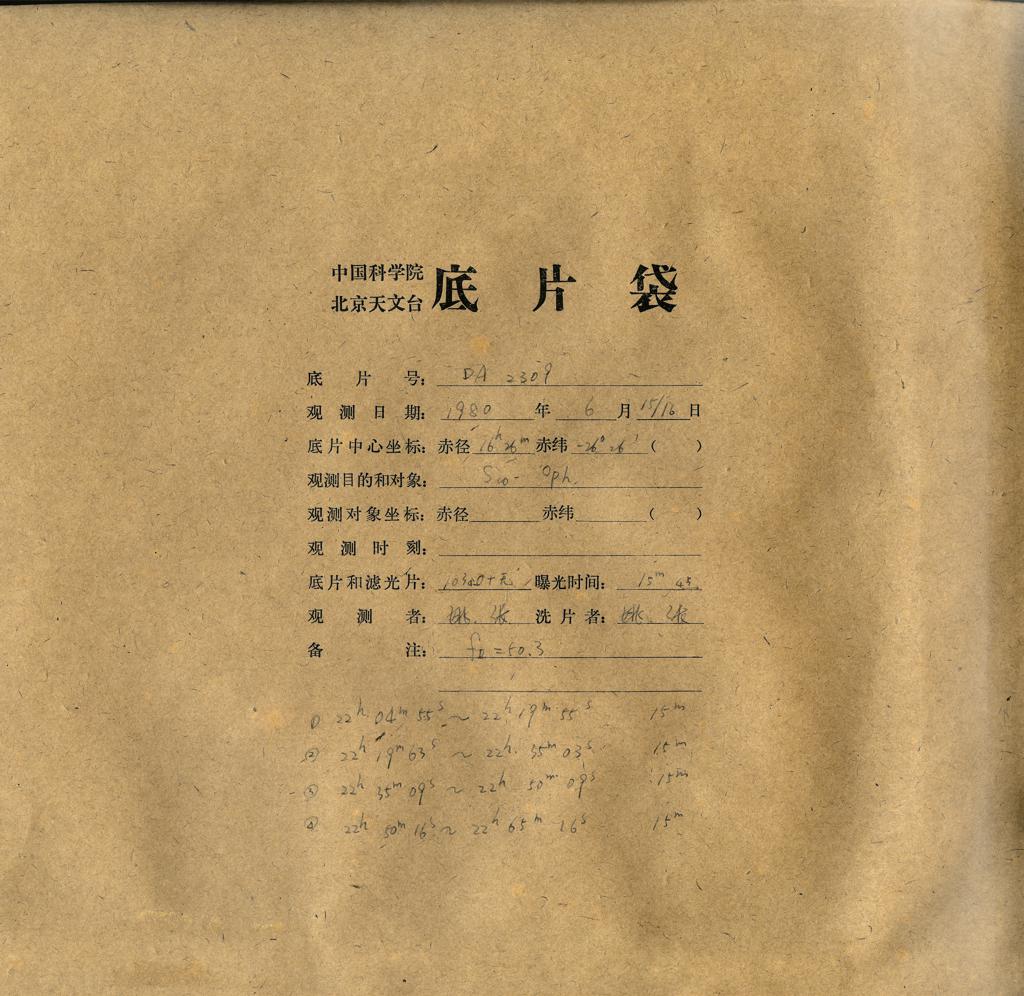 中国科学院
北京天文台
底片袋
底片号: DA 2309
观测日期: 1980 年 6 月 15/16 日
底片中心坐标: 赤径 16h 26m 赤纬 -26° 26' ( )
观测目的和对象: Sco - Oph.
观测对象坐标: 赤径 赤纬 ( )
观测时刻:
底片和滤光片: 103aO+无 曝光时间: 15m ×4
观测者: 姚、张 洗片者: 姚、张
备注: = 50.3
① 22h 04m 55s ~ 22h 19m 55s 15m
② 22h 19m 63s ~ 22h 35m 03s 15m
③ 22h 35m 09s ~ 22h 50m 09s 15m
④ 22h 50m 16s ~ 22h 65m 16s 15m